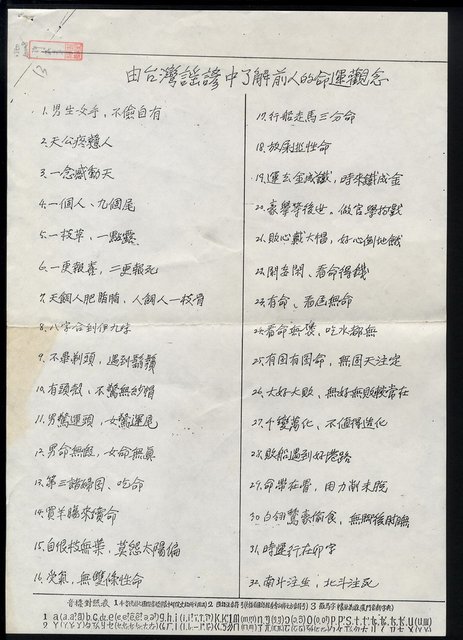 由台灣謠諺中了解前人的命運觀念
1. 男生女手，不儉自有
2. 天公疼戇人
3. 一念感動天
4. 一個人、九個尾
5. 一枝草、一點露
6. 一更報喜，二更報死
7. 天飼人肥脂脂，人飼人一枝骨
8. 八字合到伊九咪
9. 不曾剃頭，遇到鬍鬚
10. 有頭殼、不驚無紗帽
11. 男驚運頭，女驚運尾
12. 男命無假，女命無真
13. 第三諸婦囝、吃命
14. 買羊腸來續命
15. 自恨枝無葉，莫怨太陽偏
16. 受氣，無雙條性命
17. 行船走馬三分命
18. 放刺扯性命
19. 運去金成鐵，時來鐵成金
20. 豪學等後世。做官學搬戲
21. 敗心戴大帽，好心倒地餓
22. 閒女閒、看命得機
23. 有命、看匡無命
24. 看命無褒，吃水都無
25. 有囝有囝命，無囝天注定
26. 大好大敗、無好無敗較常在
27. 千變萬化、不值得造化
28. 敗船遇到好港路
29. 命帶在骨，用刀削未脫
30. 白翎鷥豪偷食，無腳後肘瞧
31. 時運行在卯字
32. 南斗注生，北斗注死
音標對照表